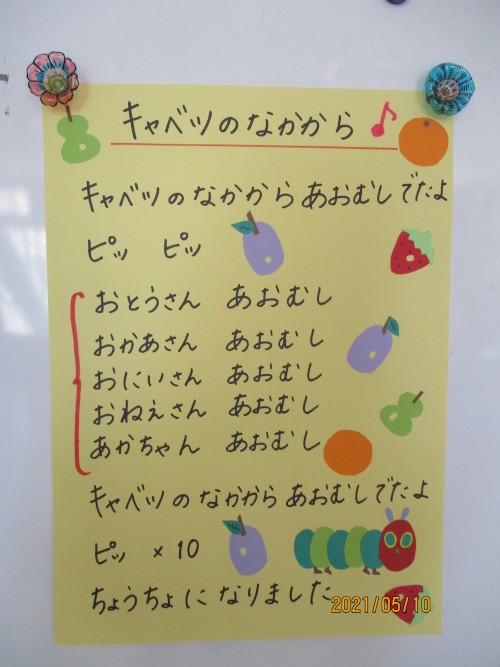 キャベツのなかから♪
キャベツのなかからあおむしでたよ
ピッ ピッ
おとうさん あおむし
おかあさん あおむし
おにいさん あおむし
おねえさん あおむし
あかちゃん あおむし
キャベツのなかからあおむしでたよ
ピッ ×10
ちょうちょになりました
2021/05/10